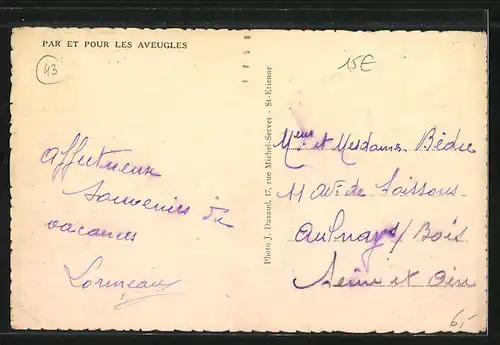 PAR ET POUR LES AVEUGLES
43
15E
Affectueux
souvenirs de
vacances
Photo J. Dazaud, 17, rue Michel-Servet - St-Etienne
Meur et Mesdames
11 av. de Soissons
Aulnay s/ Bois
Seine et Oise
6,-